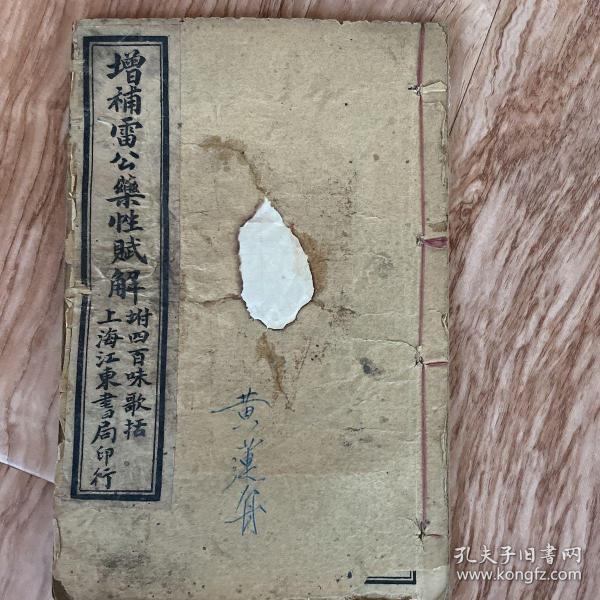 增補雷公藥性賦解
坿四百味歌括
上海江東書局印行
黄漢舟
孔夫子旧书网
www.kongfz.com